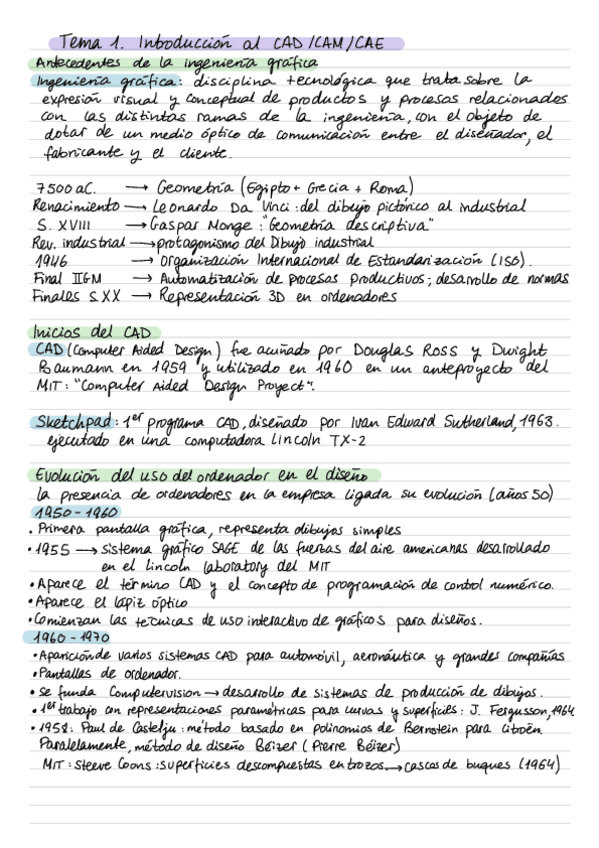 Tema 1. Introducción al CAD/CAM/CAE
Antecedentes de la ingeniería gráfica
Ingeniería gráfica: disciplina tecnológica que trata sobre la
expresión visual y conceptual de productos y procesos relacionados
con las distintas ramas de la ingeniería, con el objeto de
dotar de un medio óptico de comunicación entre el diseñador, el
fabricante y el cliente.
7500 a.C. → Geometría (Egipto + Grecia + Roma)
Renacimiento → Leonardo Da Vinci: del dibujo pictórico al industrial
S. XVIII → Gaspar Monge: "Geometría descriptiva"
Rev. industrial → protagonismo del Dibujo industrial
1946 → Organización Internacional de Estandarización (ISO).
Final IIGM → Automatización de procesos productivos; desarrollo de normas
Finales S.XX → Representación 3D en ordenadores
Inicios del CAD
CAD (Computer Aided Design) fue acuñado por Douglas Ross y Dwight
Baumann en 1959 y utilizado en 1960 en un anteproyecto del
MIT: "Computer Aided Design Proyect".
Sketchpad: 1er programa CAD, diseñado por Ivan Edward Sutherland, 1963.
ejecutado en una computadora Lincoln TX-2
Evolución del uso del ordenador en el diseño
la presencia de ordenadores en la empresa ligada su evolución (años 50)
1950-1960
• Primera pantalla gráfica, representa dibujos simples
• 1955 → sistema gráfico SAGE de las fuerzas del aire americanas desarollado
en el Lincoln laboratory del MIT
• Aparece el término CAD y el concepto de programación de control numérico.
• Aparece el lápiz óptico
• Comienzan las técnicas de uso interactivo de gráficos para diseños.
1960-1970
• Aparición de varios sistemas CAD para automóvil, aeronáutica y grandes compañías
• Pantallas de ordenador.
• se funda Computervision → desarrollo de sistemas de producción de dibujos.
• 1er trabajo con representaciones paramétricas para curvas y superficies: J. Fergusson, 1964
• 1958: Paul de Castelju: método basado en polinomios de Bernstein para Citroën.
Paralelamente, método de diseño Béizer (Pierre Béizer)
MIT: Steeve Coons: superficies descompuestas en trozos → cascos de buques (1964)